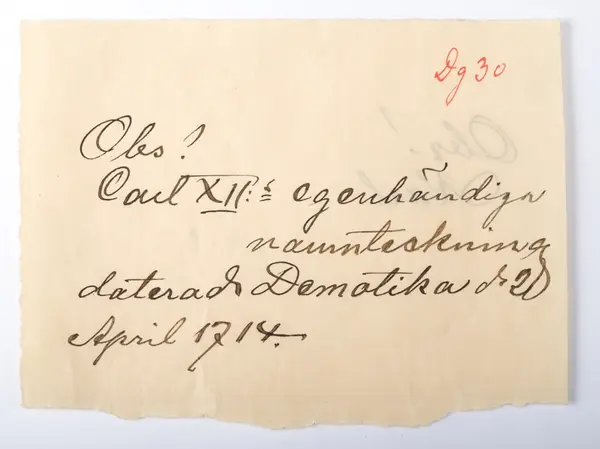 Dg 30
Obs!
Carl XII:s egenhändiga
namnteckning
daterad Demotika d.
April 1714.